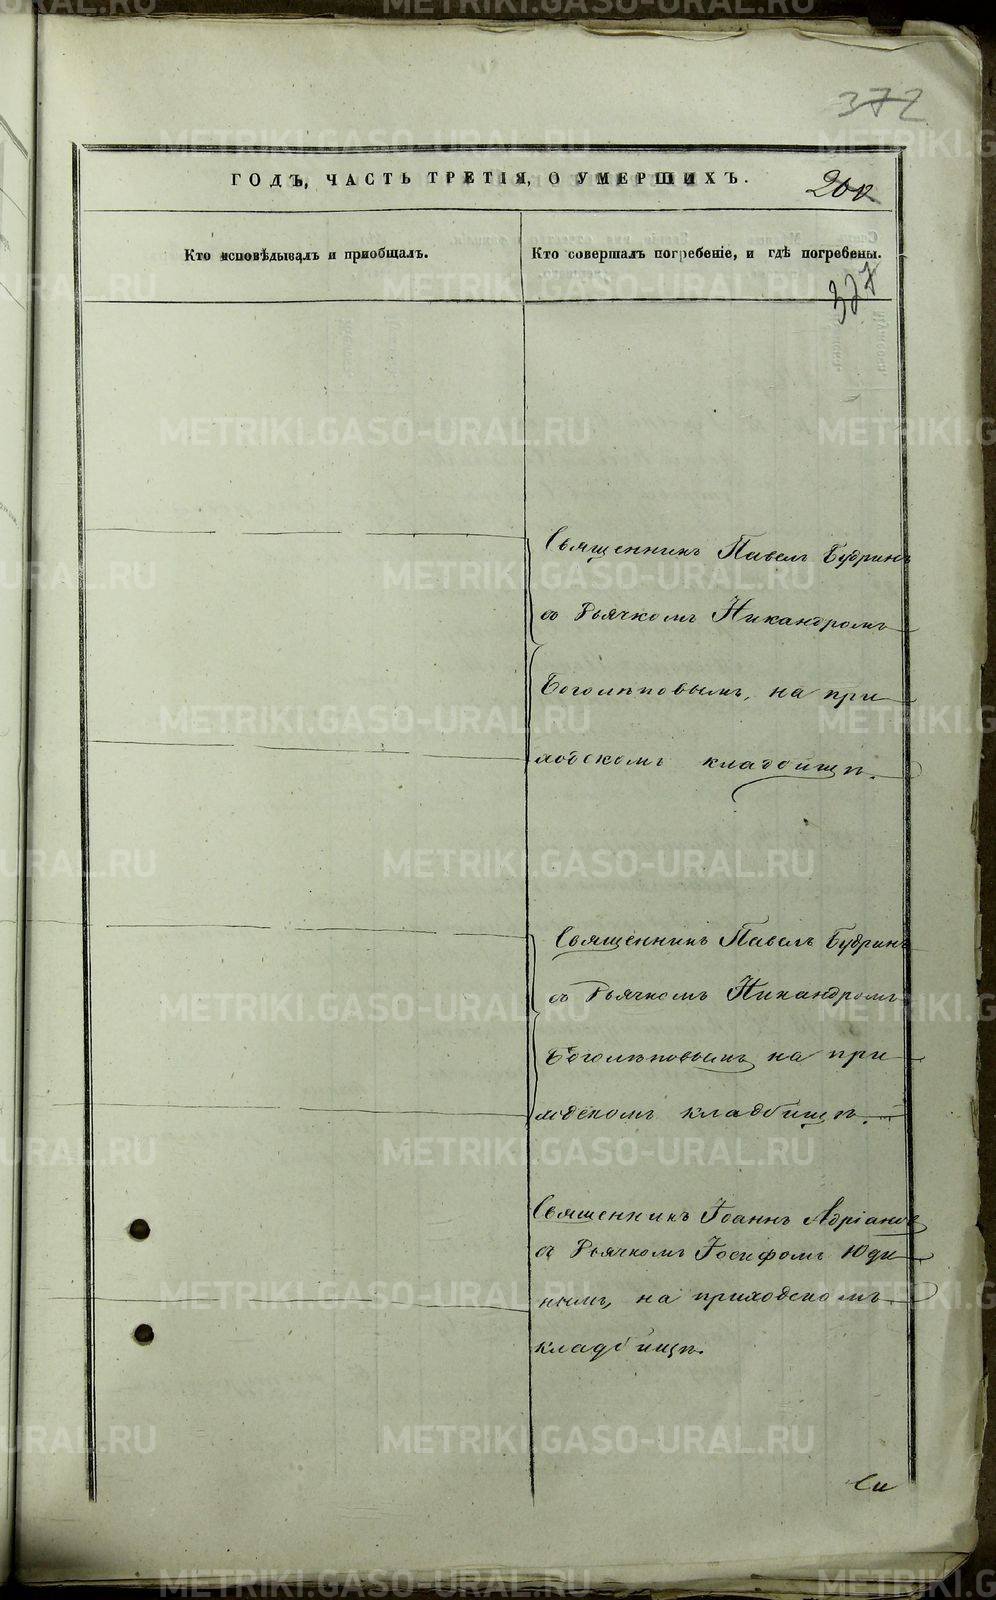 372
ГОДЪ, ЧАСТЬ ТРЕТІЯ, О УМЕРШИХЪ.
200
Кто исповѣдывалъ и пріобщалъ.
Кто совершалъ погребеніе, и гдѣ погребены.
327
Священникъ Павелъ Будринъ
съ Дьячкомъ Никандромъ
Боголѣповымъ, на при
ходскомъ кладбищѣ.
Священникъ Павелъ Будринъ
съ Дьячкомъ Никандромъ
Боголѣповымъ на при
ходскомъ кладбищѣ.
Священникъ Іоаннъ Адріанов
съ Дьячкомъ Іосифомъ Юди
нымъ, на приходскомъ
кладбищѣ.
METRIKI.GASO-URAL.RU